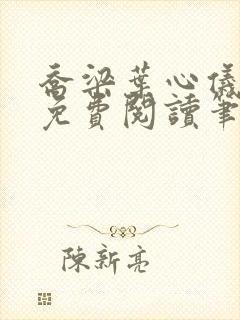 喬梁葉心儀
免費閱讀筆
陳新亮